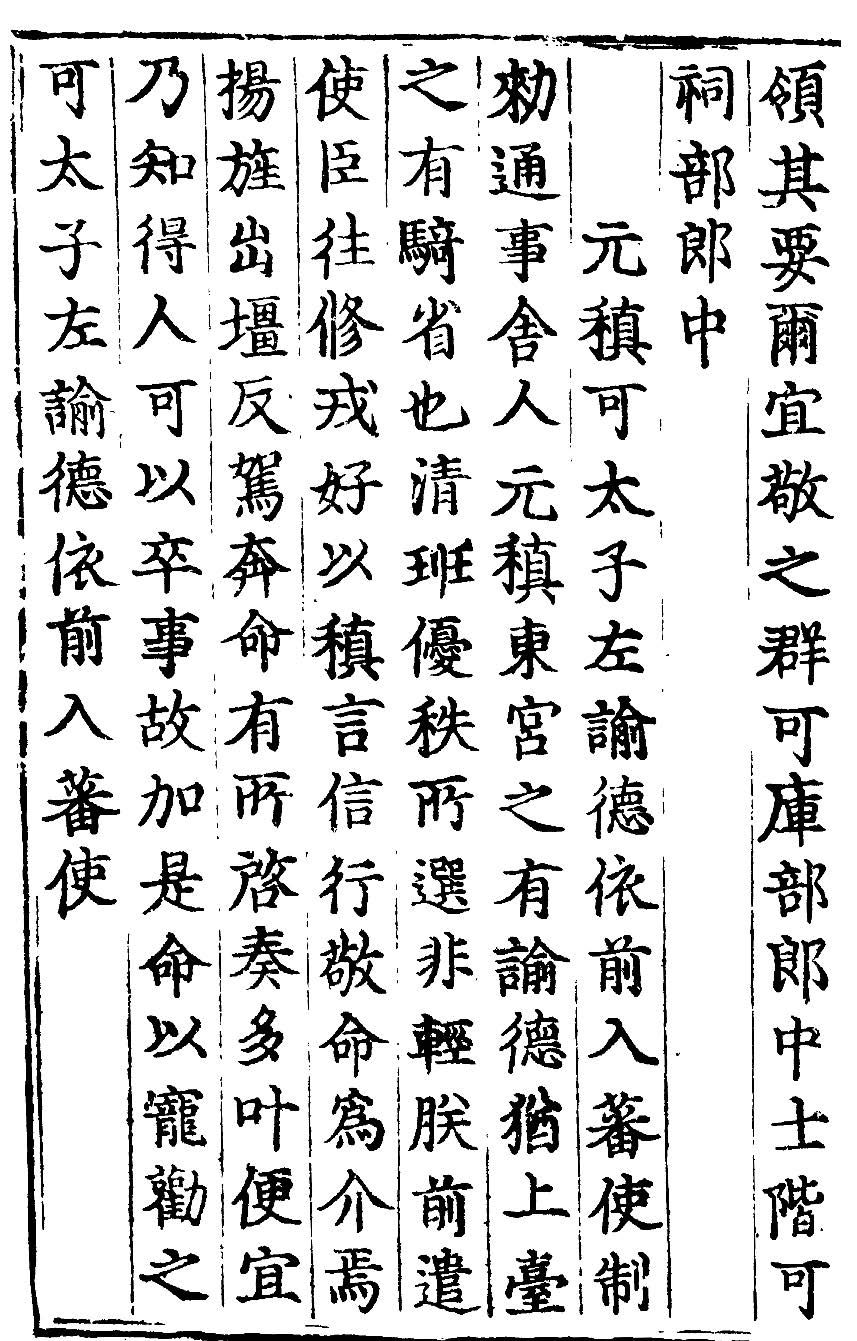 領其要爾宜敬之群可庫部郎中士階可
祠部郎中
元稹可太子左諭德依前入蕃使制
勑通事舍人元稹東宮之有諭德猶上臺
之有騎省也清班優秩所選非輕朕前遣
使臣往修戎好以稹言信行敬命爲介焉
揚旌出壃反駕奔命有所啓奏多叶便宜
乃知得人可以卒事故加是命以寵勸之
可太子左諭德依前入蕃使